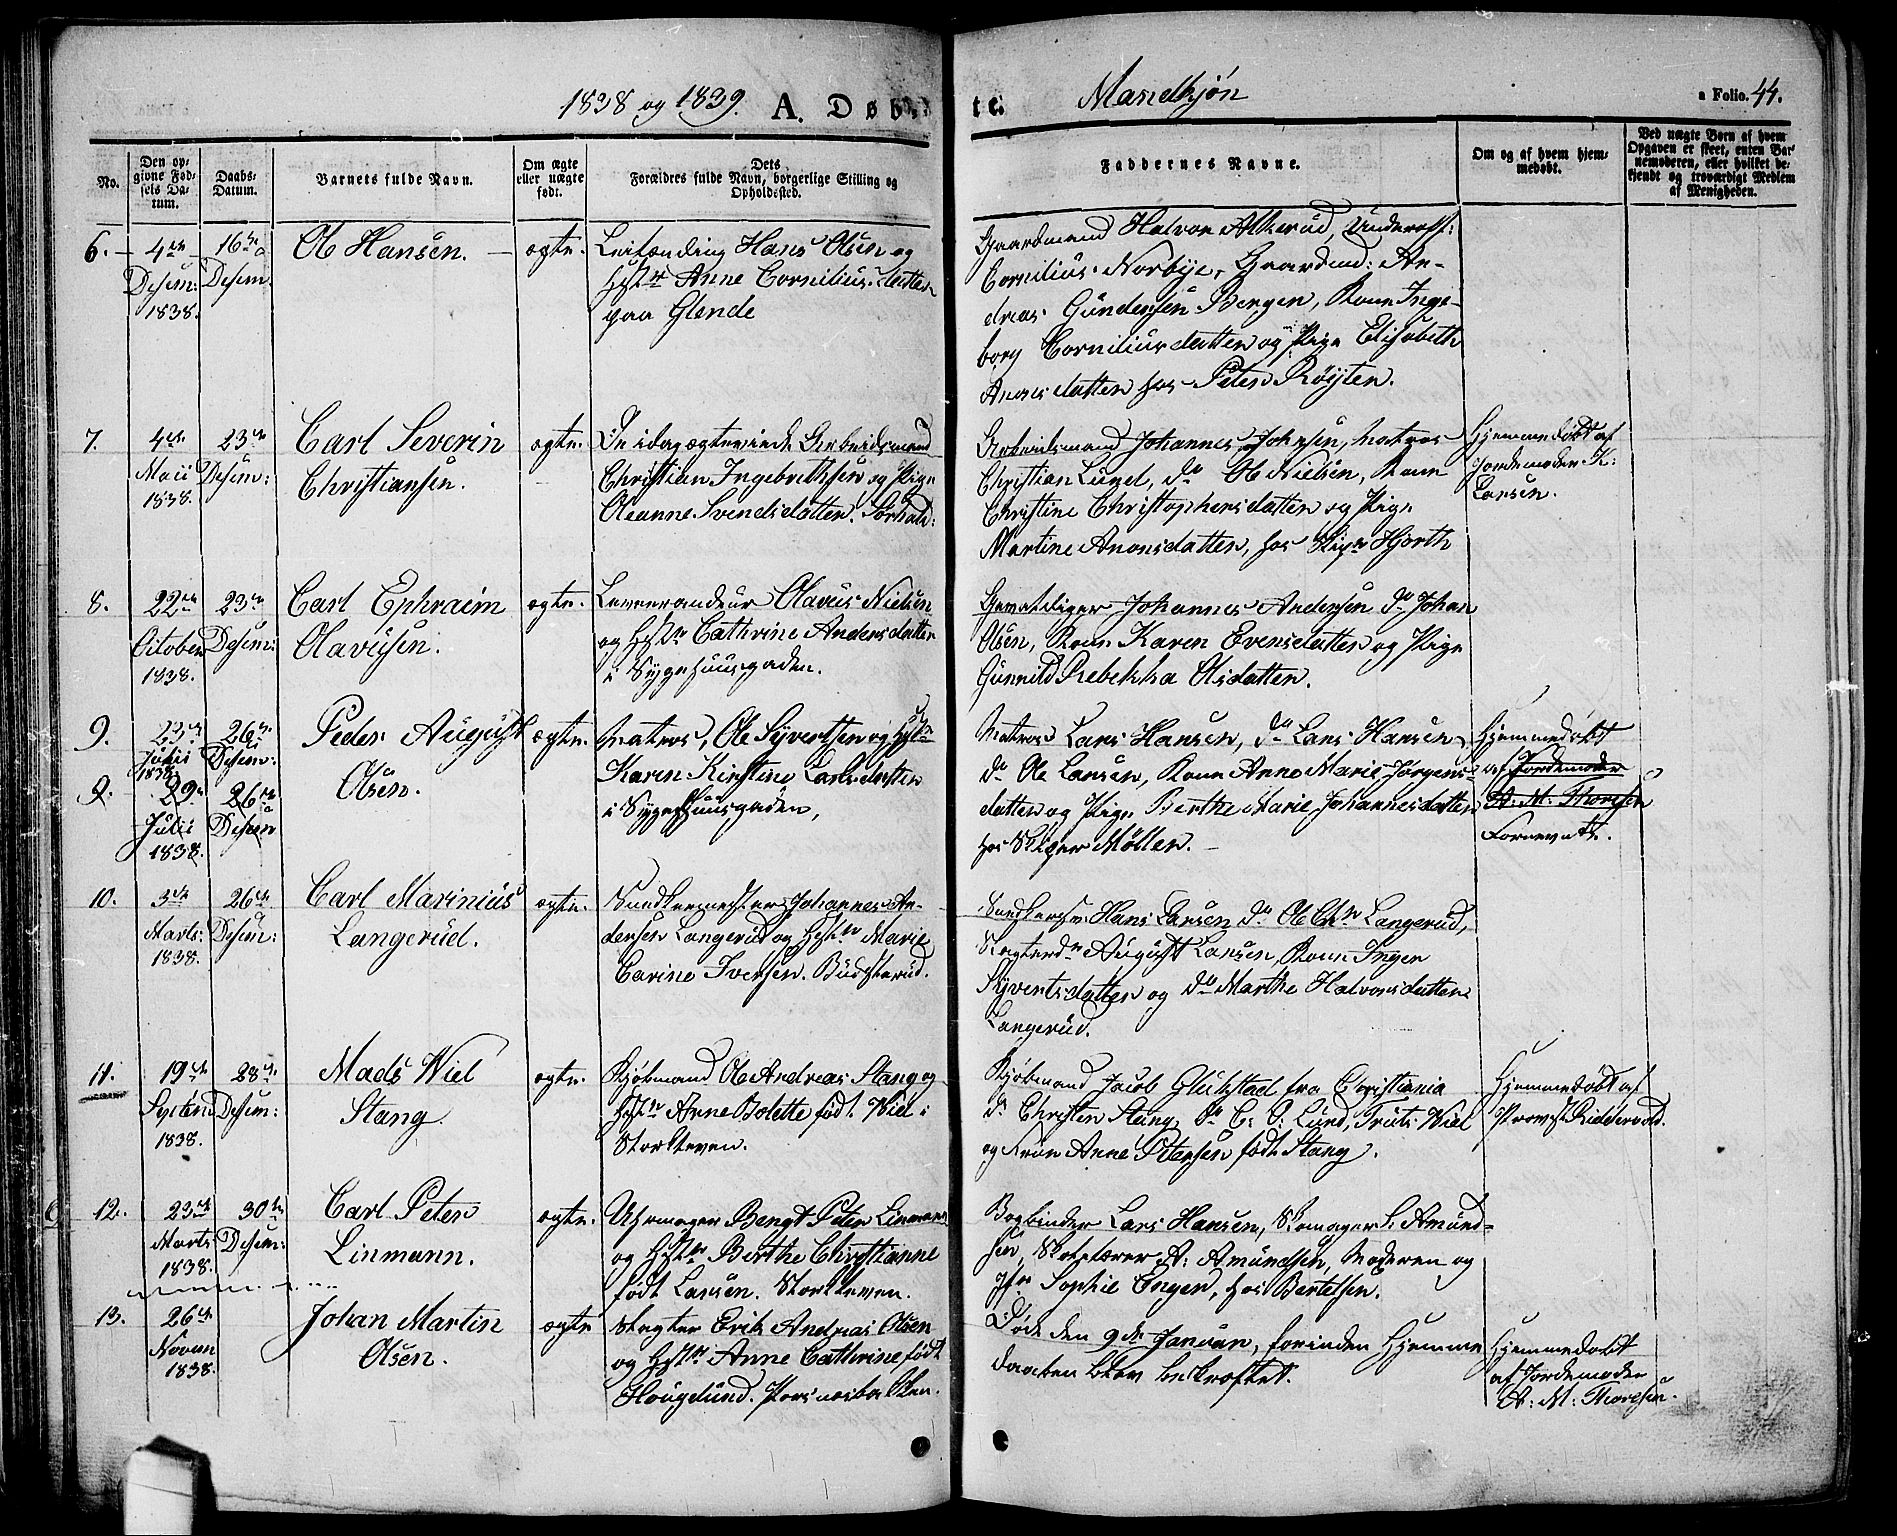 1838 og 1839. A. Døbte. Mandkjøn a Folio. 44.
No.
Den opgivne Fødsels Datum.
Daabs-Datum.
Barnets fulde Navn.
Om ægte eller uægte født.
Dets Forældres fulde Navn, borgerlige Stilling og Opholdssted.
Faddernes Navne.
Om og af hvem hjemmedøbt.
Ved uægte Børn af hvem Opgaven er skeet, enten Barnemoderen, eller hvilket bekjendt og troværdigt Medlem af Menigheden.
6.
4de
Desem:
1838.
16de
Desem.
Ole Hansen.
ægte.
Hans Olsen og
Hustr Anne Corniliusdatter
paa Glende
Gaardmand Halvor Alkerud,
Cornilius Norbye, Gaardmd: An-
dreas Gundersen Bergen, Kone Inge-
borg Corniliusdatter og Pige Elisabeth
datter hos Peter Røyten.
7.
4de
Maii
1838.
23de
Desem:
Carl Severin
Christiansen.
ægte.
De idag ægteviede Arbeidsmand
Christian Ingebrethsen og Pige
Oleanne Svendsdatter.
Arbeidsmand Johannes Johnsen, Matros
Christian Lund, do Ole Nielsen, Kone
Christine Christophersdatter og Pige
Martine Aronsdatter, hos Hjorth
Hjemmedøbt af
Jordemoder K:
Larsen.
8.
22de
October
1838.
23de
Desem:
Carl Ephraim
Olavesen.
ægte.
Leverandeur Olaves Nielsen
og Hstr Cathrine Andersdatter
i Sygehuusgaden.
Johannes Andersen do Johan
Olsen, Kone Karen Evensdatter og Pige
Gunnild Rebekka Olsdatter.
9.
23de
Julii
1838
26de
Desem:
Peder August
Olsen.
ægte.
Matros, Ole Syvertsen og Hstr
Karen Kirstine Larsdatter
i Sygehuusgaden,
Matros Lars Hansen, do Lars Hansen,
do Ole Larsen, Kone Anne Marie Jørgens-
datter og Pige Berthe Marie Johannesdatter
hos Møller.
Hjemmedøbt
af Jordemoder
A. M. Thoresen
9.
29de
Julii
1838.
26de
Desem
10.
3de
Marts:
1838.
26de
Desem:
Carl Marinius
Langerud.
ægte.
Snedkermester Johannes An-
dersen Langerud og Hstr Marie
Carine Iversen.
Snedkersv: Hans Larsen do Ole Chr Langerud,
Slagter August Larsen, Kone Inger
Syvertsdatter og do Marthe Halvorsdatter
Langerud.
11.
19de
Septem
1838.
28de
Desem:
Mads Wiel
Stang.
ægte.
Kjøbmand Ole Andreas Stang og
Hstr Anne Bolette født Wiel i
Storsteven.
Kjøbmand Jacob Glückstad fra Christiania
do Christen Stang, do C: O: Lund, Truls Wiel
og Frue Anne Petersen født Stang.
Hjemmedøbt af
Provst Riddervold.
12.
23de
Marts
1838.
30de
Desem:
Carl Peter
Linmann.
ægte.
Uhrmager Bengt Peter Linmann
og Hstr Berthe Christianne
født Larsen. Storsteven.
Bogbinder Lars Hansen, Skomager L. Amund-
sen, Skolelærer A: Amundsen, Moderen og
Jfr Sophie Enger, hos Bertelsen.
13.
26de
Novem
1838.
Johan Martin
Olsen.
ægte
Slagter Erik Andreas Olsen
og Hstr Anne Cathrine født
Hougelund.
Døde den 9de Januar, forinden Hjemme
daaben blev bekræftet.
Hjemmedøbt
af Jordemoder
A: M: Thoresen.